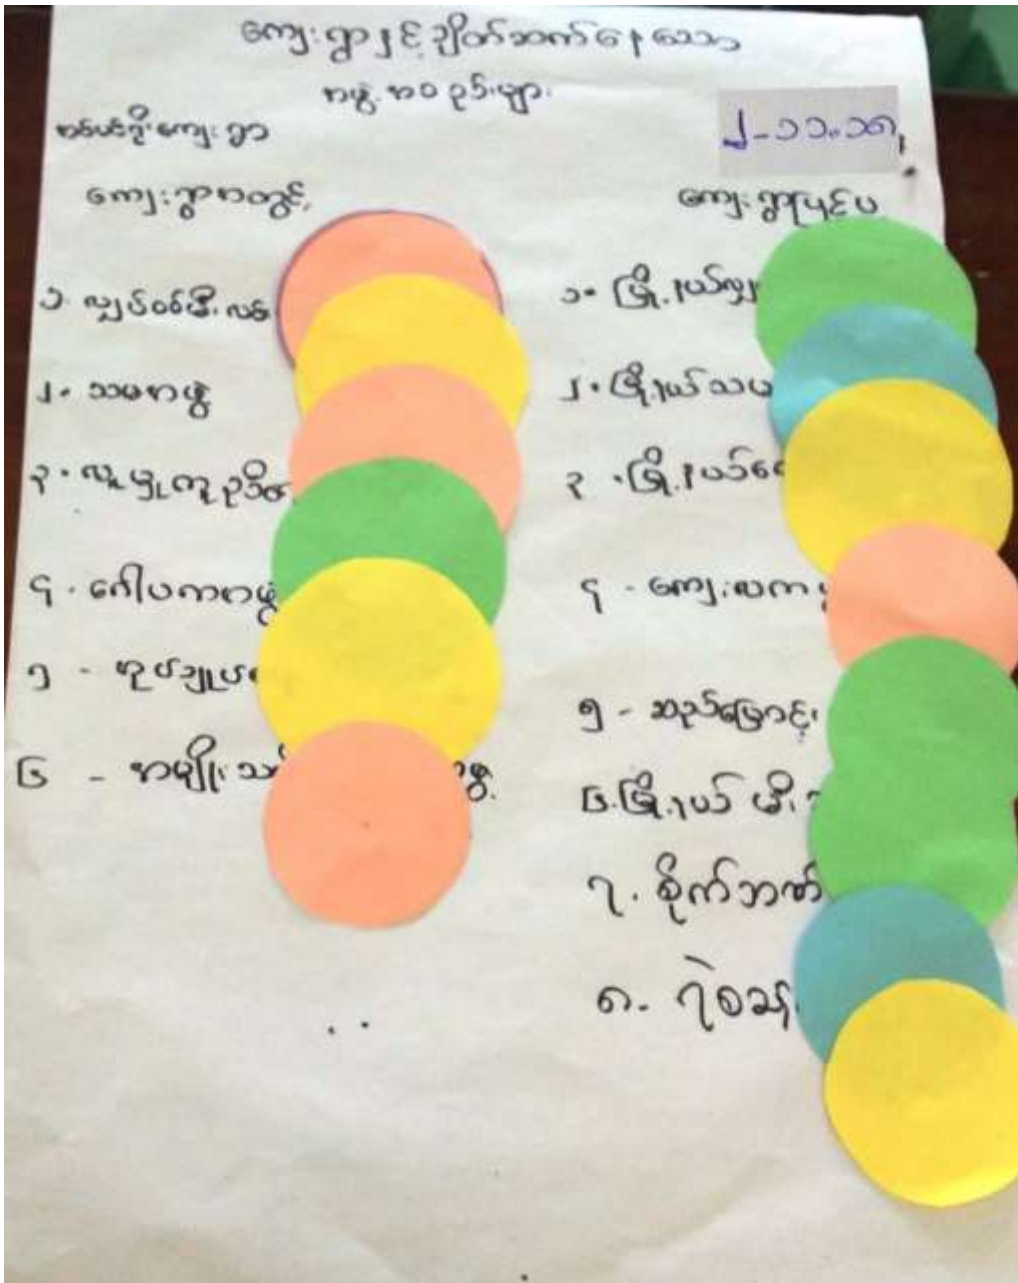 ကျေးရွာနှင့်ချိတ်ဆက်နေသော
အဖွဲ့အစည်းများ
ကျေးရွာ
၂-၁၁-၁၈
ကျေးရွာအတွင်း
၁. လျှပ်စစ်မီးလင်း
၂. သမအဖွဲ့
၃.
၄. ဂေါပကအဖွဲ့
၅ - အုပ်ချုပ်
၆ - အမျိုးသ ဖွဲ့
ကျေးရွာပြင်ပ
၁. မြို့နယ်လျှ
၂. မြို့နယ်သမ
၃. မြို့နယ်
၄ - ကျေးလက
၅ - ဆည်မြောင်း
၆. မြို့နယ် မီး
၇. စိုက်ဘဏ်
၈. ရဲစခန်း